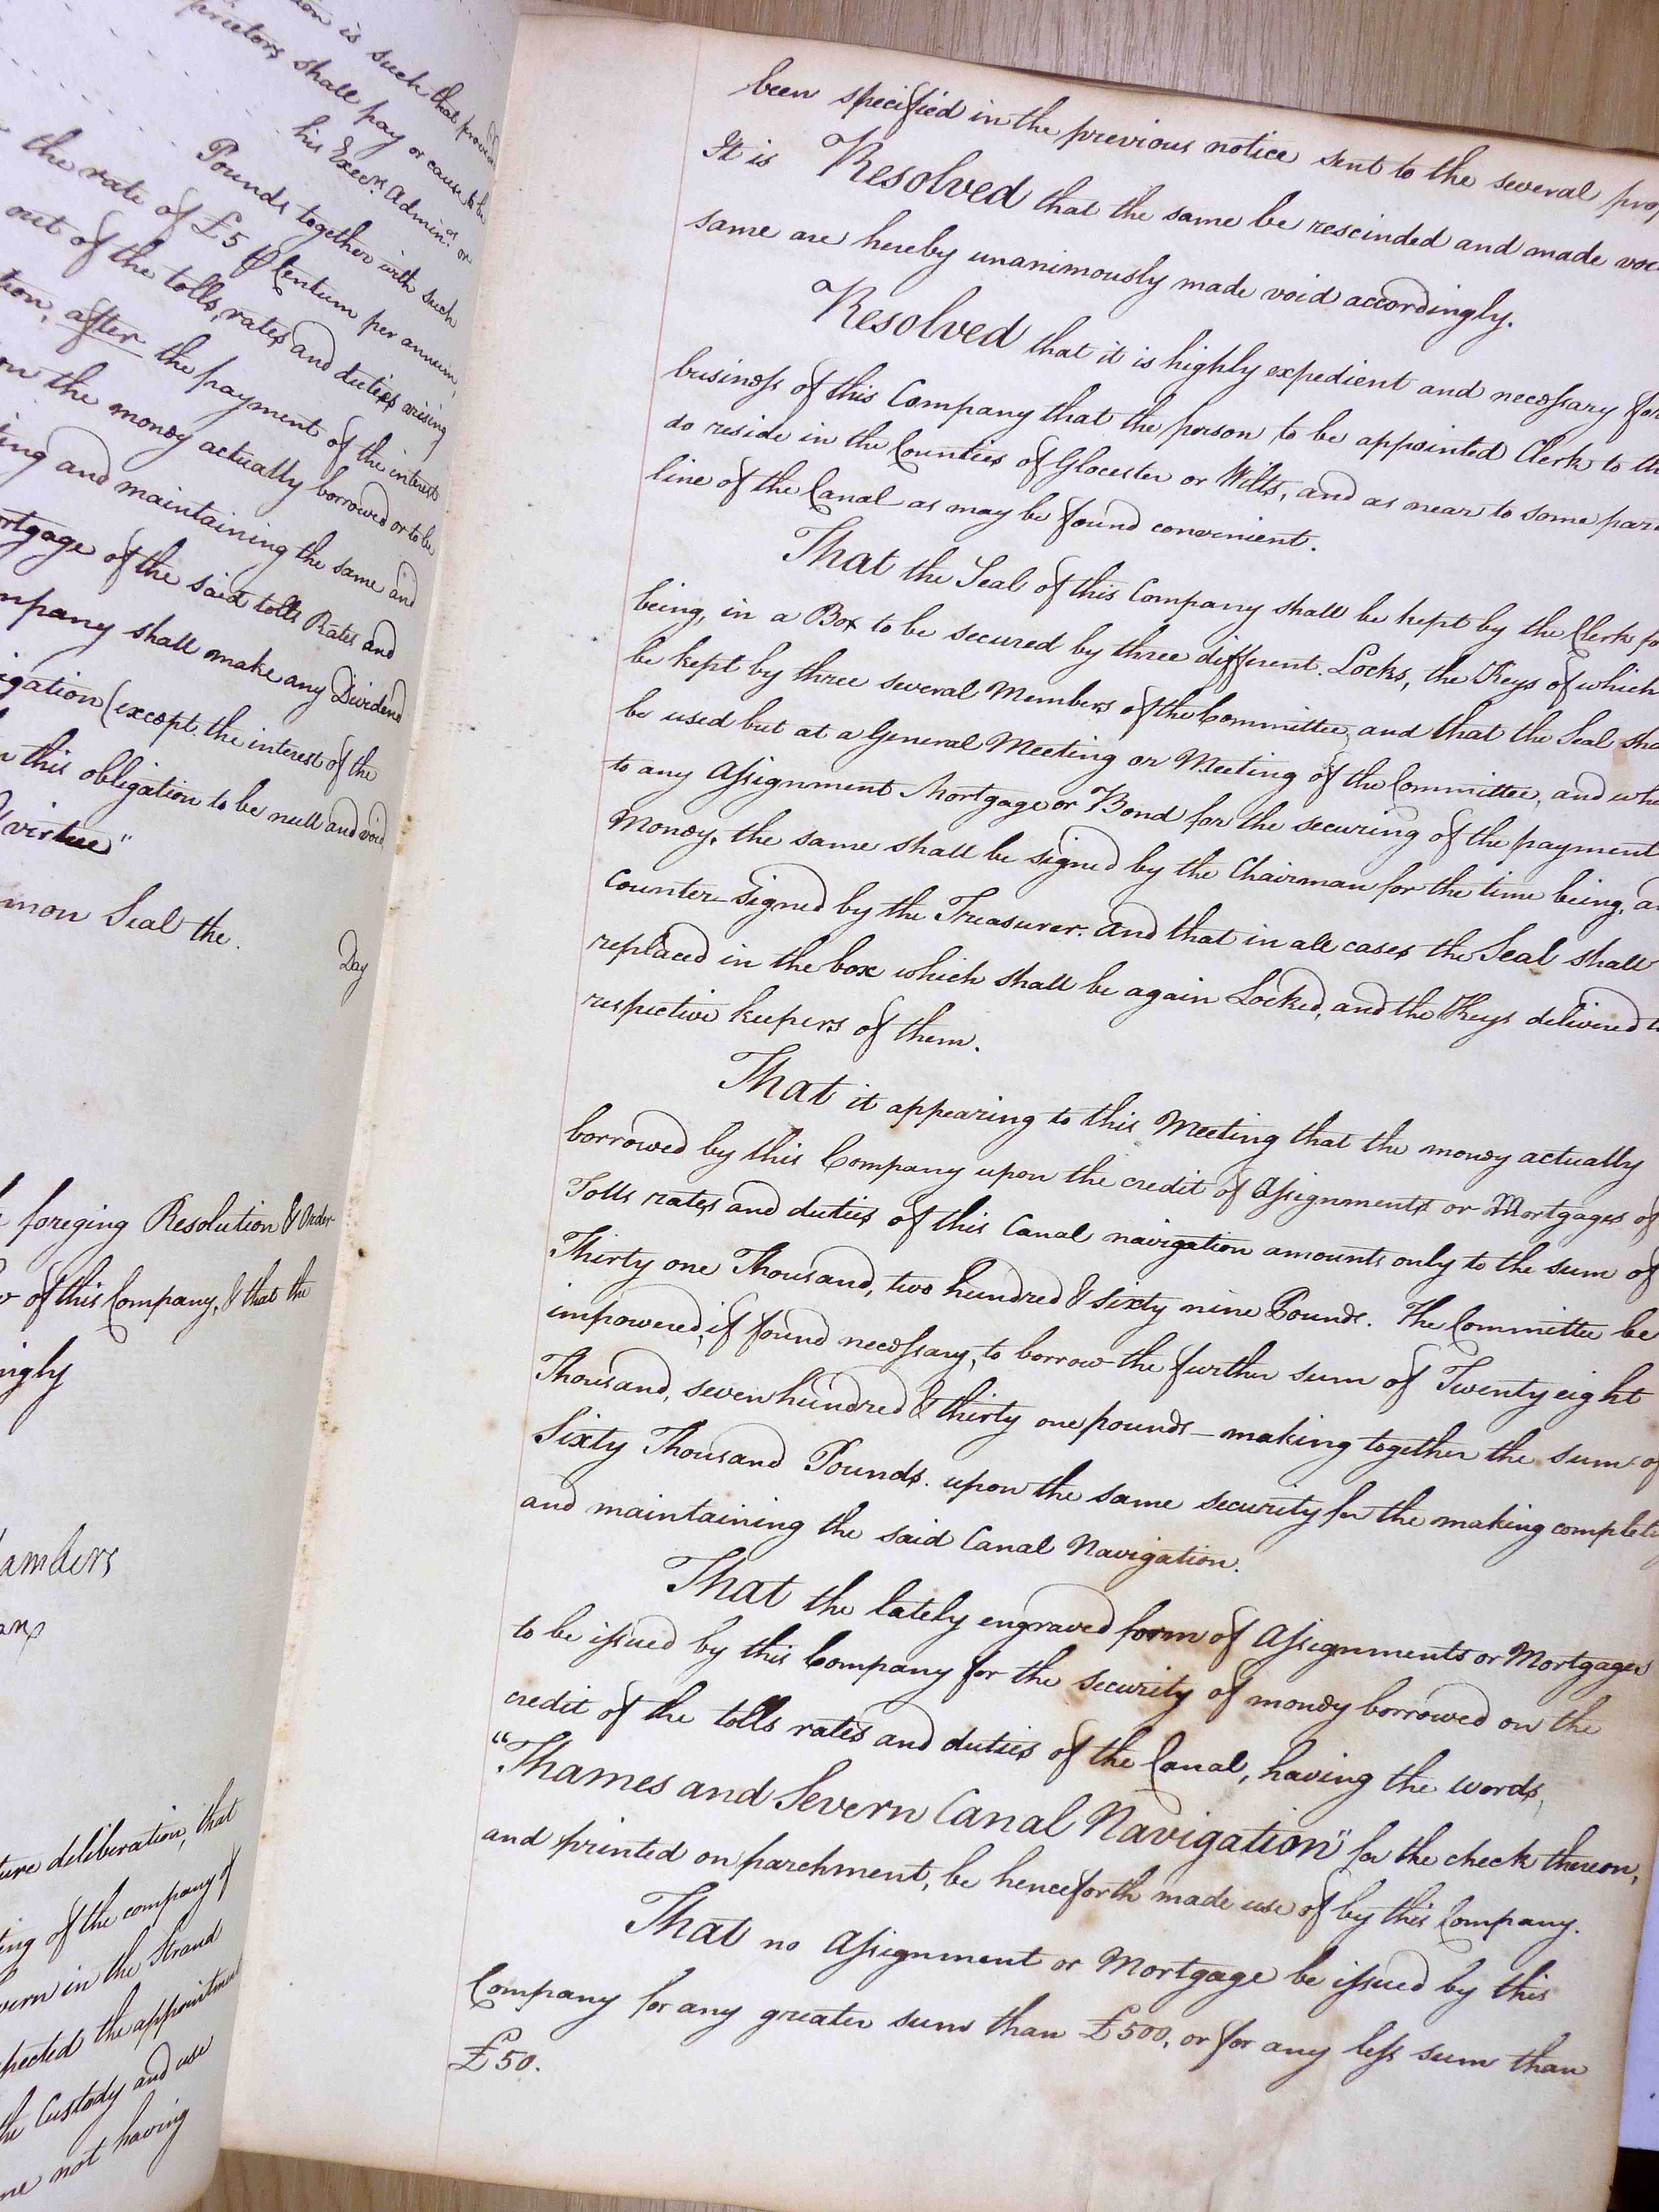 tion is such that
prietors shall pay or cause to be
his Execrs. Admin.rs or
Pounds together with such
the rate of £5 ⅌ Centum per annum,
out of the tolls, rates and duties arising
tion, after the payment of the interest
on the money actually borrowed or to be
ting and maintaining the same and
ortgage of the said tolls Rates and
mpany shall make any Dividend
igation (except the interest of the
n this obligation to be null and void,
virtue"
mon Seal the
Day
foreging Resolution & Order
of this Company, & that the
ngly
ambers
an
ture deliberation, that
ting of the company of
vern in the Strand
pected the appointment
the Custody and use
me not having
been specified in the previous notice sent to the several prop
It is Resolved that the same be rescinded and made voi
same are hereby unanimously made void accordingly.
Resolved that it is highly expedient and necessary for
business of this Company that the person to be appointed Clerk to th
do reside in the Counties of Glocester or Wilts, and as near to some part
line of the Canal as may be found convenient.
That the Seal of this Company shall be kept by the Clerk fo
being, in a Box to be secured by three different Locks, the Keys of which
be kept by three several Members of the Committee, and that the Seal sha
be used but at a General Meeting or Meeting of the Committee, and whe
to any Assignment Mortgage or Bond for the securing of the payment
Money, the same shall be signed by the Chairman for the time being, a
Counter-signed by the Treasurer. And that in all cases the Seal shall
replaced in the box which shall be again Locked, and the Keys delivered t
respective keepers of them.
That it appearing to this Meeting that the money actually
borrowed by this Company upon the credit of Assignments or Mortgages of
Tolls rates and duties of this Canal navigation amounts only to the sum of
Thirty one Thousand, two hundred & sixty nine Pounds. The Committee be
impowered, if found necessary, to borrow the further sum of Twenty eight
Thousand, seven hundred & thirty one pounds - making together the sum of
Sixty Thousand Pounds. upon the same security for the making complet
and maintaining the said Canal Navigation.
That the lately engraved form of Assignments or Mortgages
to be issued by this Company for the security of money borrowed on the
credit of the tolls rates and duties of the Canal, having the words,
"Thames and Severn Canal Navigation" for the check thereon,
and printed on parchment, be henceforth made use of by this Company.
That no Assignment or Mortgage be issued by this
Company for any greater sum than £500, or for any less sum than
£50.